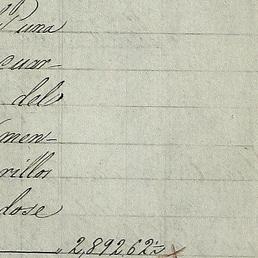 una
cuar-
del
men-
rillos
dose
2,892,62½